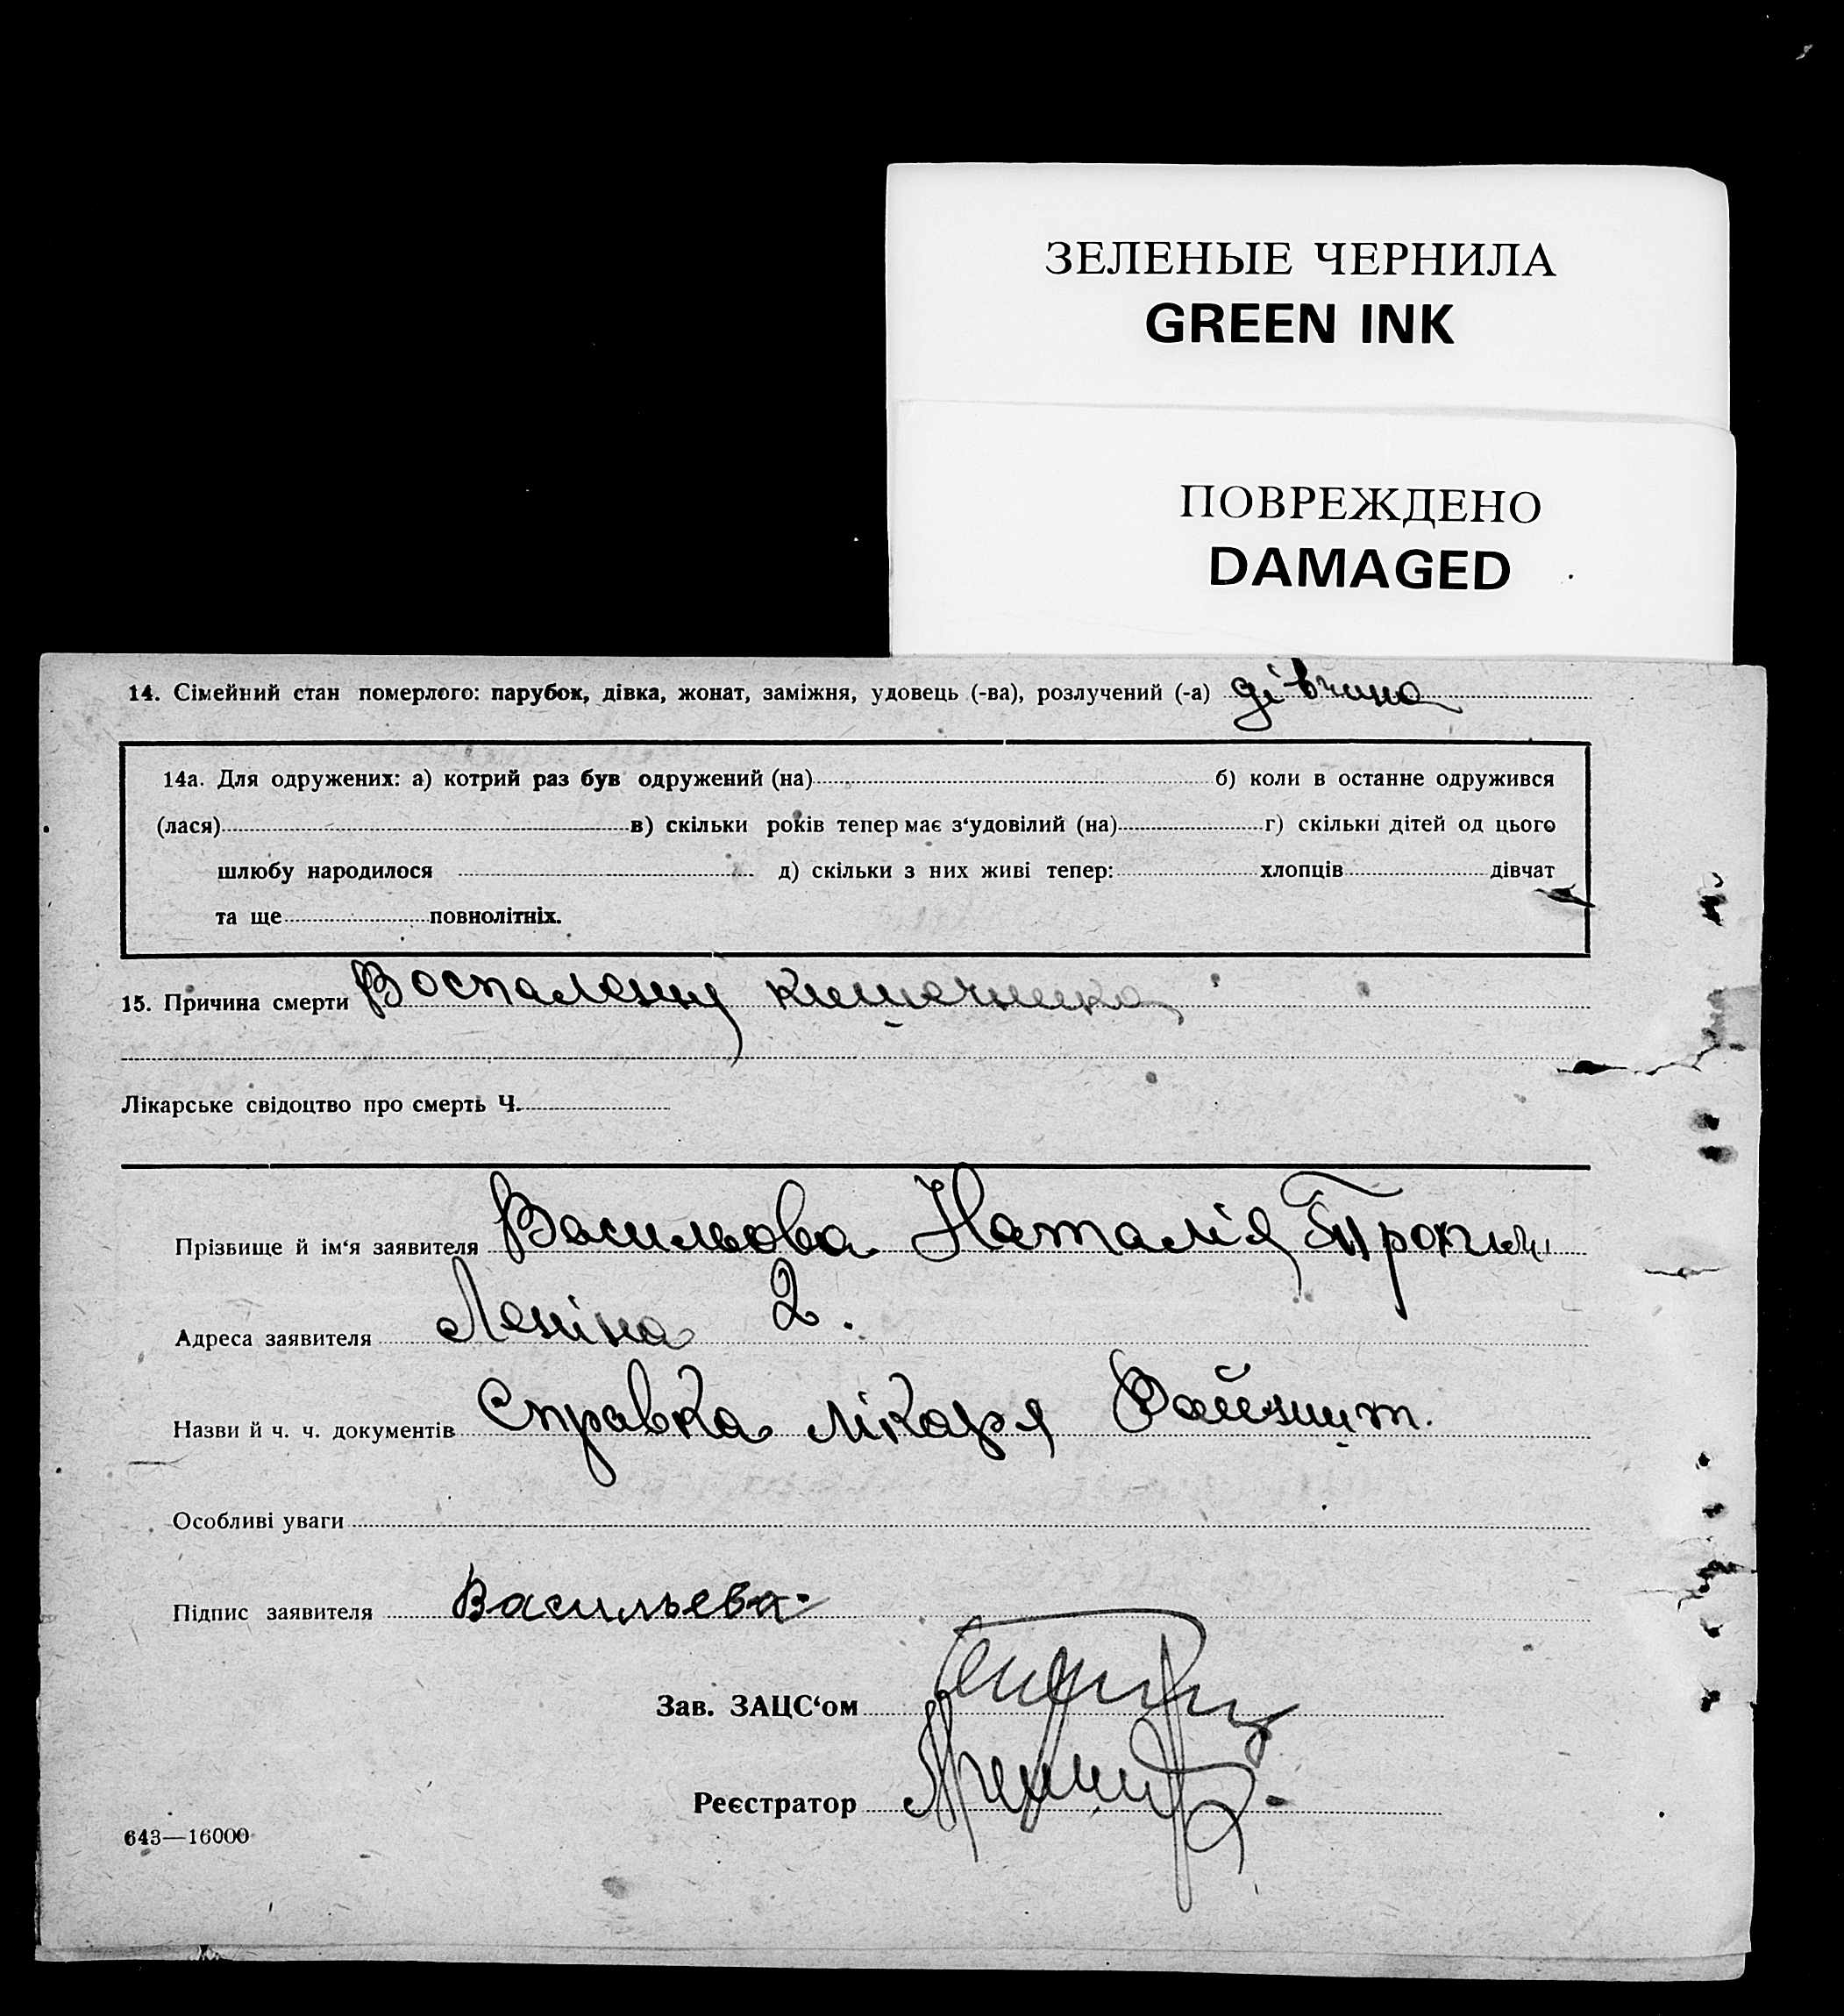 ЗЕЛЕНЫЕ ЧЕРНИЛА
GREEN INK
ПОВРЕЖДЕНО
DAMAGED
14. Сімейний стан померлого: парубок, дівка, жонат, заміжня, удовець (-ва), розлучений (-а) дівчина
14а. Для одружених: а) котрий раз був одружений (на) б) коли в останнє одружився
(лася) в) скільки років тепер має з‘удовілий (на) г) скільки дітей од цього
шлюбу народилося д) скільки з них живі тепер: хлопців дівчат
та ще повнолітніх.
15. Причина смерти Воспаленну кишечника
Лікарське свідоцтво про смерть Ч.
Прізвище й ім‘я заявителя Васильова Наталія
Адреса заявителя Леніна 2.
Назви й ч. ч. документів Справка лікаря
Особливі уваги
Підпис заявителя Васильева
Зав. ЗАЦС‘ом
Реєстратор
643—16000